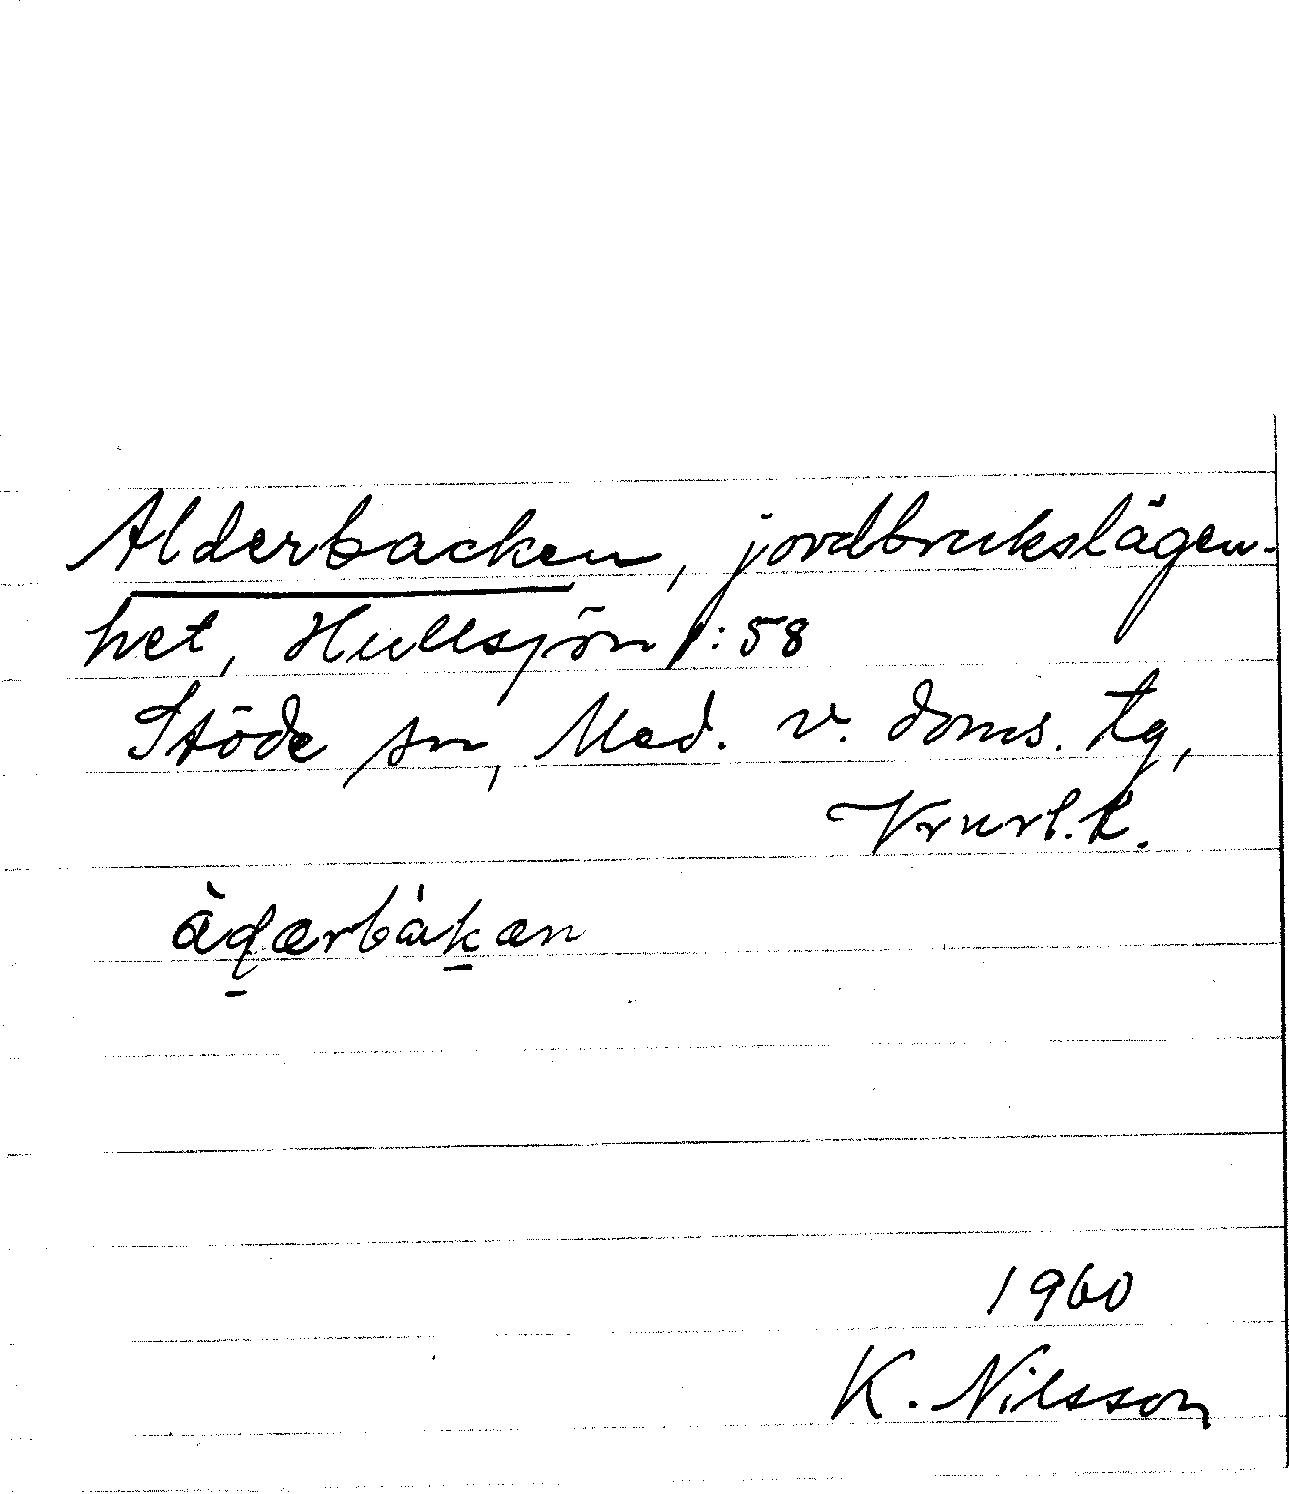 Alderbacken, jordbrukslägen-
het, Hullsjön 1:58
Stöde sn, Med. v. doms. tg,
Vrnrl. k.
àđærbákæn
1960
K. Nilsson